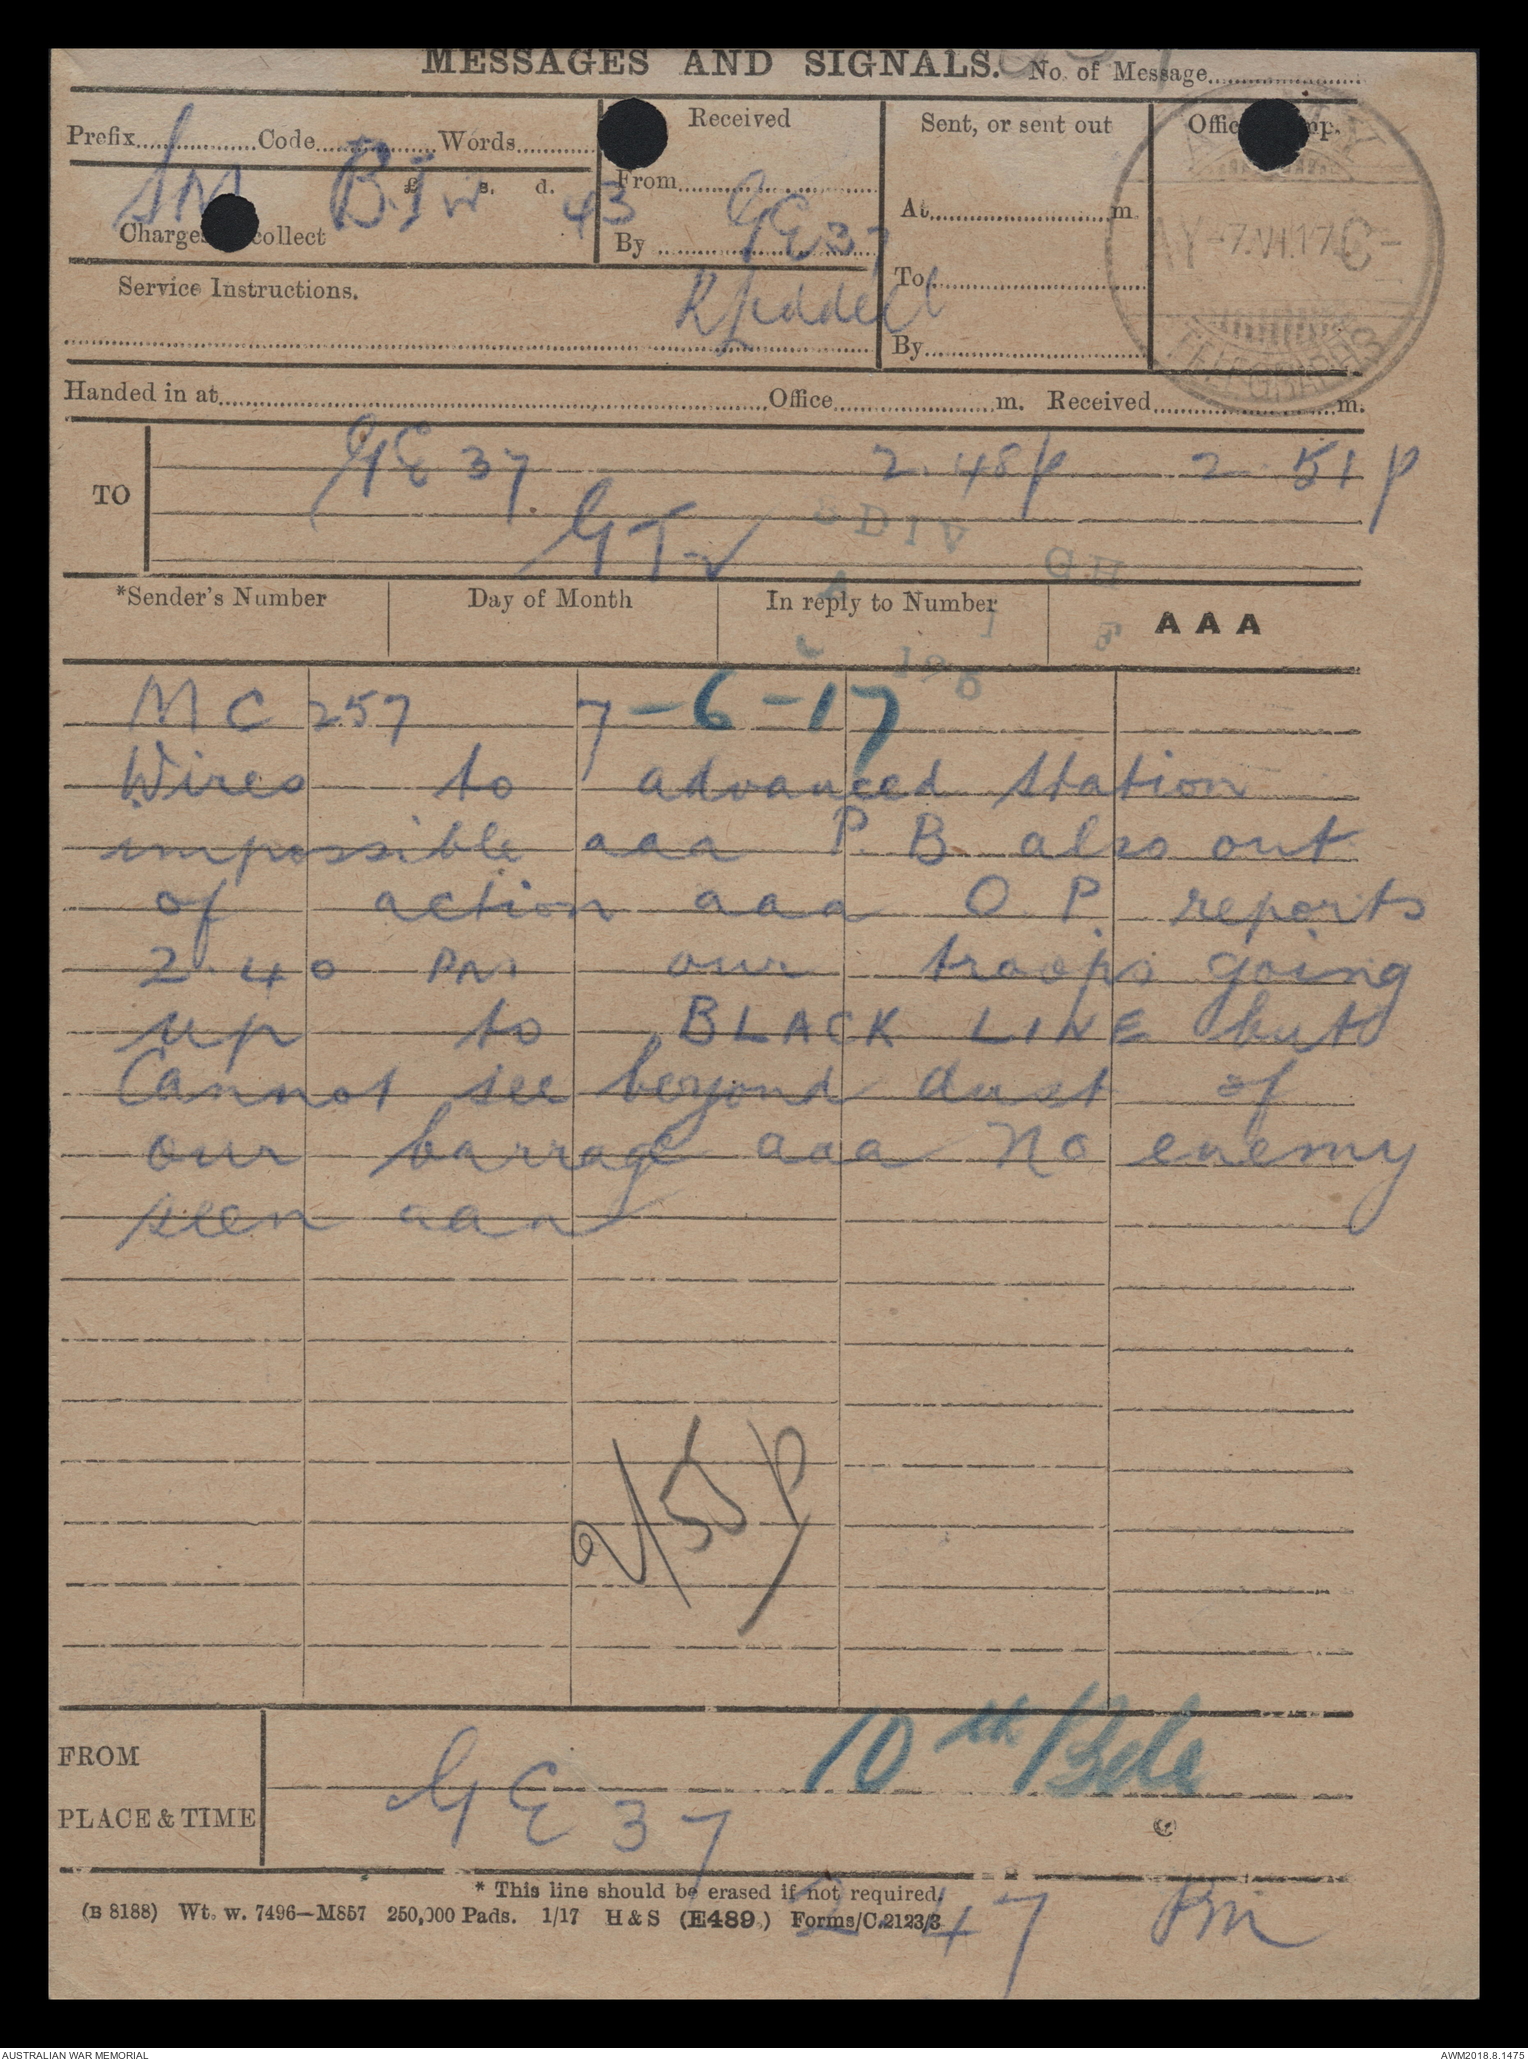 MESSAGES AND SIGNALS. No. of Message
Prefix Code Words
Received
Sent, or sent out
SM 43
£ s. d.
From GE37
At m.
Charges collect
By
-7.VI.17 C-
To
Service Instructions.
By
TELEGRAPHS
Handed in at Office m. Received m.
GE 37 2.48p 2.51p
TO
DIV
G.H
*Sender's Number Day of Month In reply to Number AAA
MC 257 7-6-17
Wires to advanced station
impossible aaa P.B also out
of action aaa O.P. reports
2.40 PM our troops going
up to BLACK LINE but
Cannot see beyond dust of
our barrage aaa No enemy
seen aaa
2/55p
FROM 10th Bde
GE 37
PLACE & TIME
* This line should be erased if not required.
(B 8188) Wt. w. 7496—M857 250,000 Pads. 1/17 H & S (E489.) Forms/C.2123/3
2.47 Pm
AUSTRALIAN WAR MEMORIAL AWM2018.8.1475